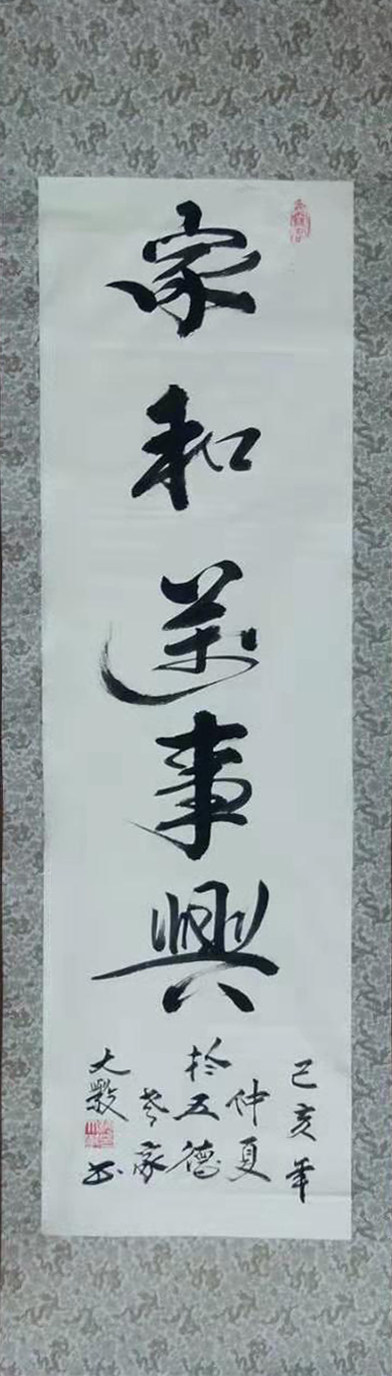 家和萬事興
己亥年
仲夏
於五德
艺家
大毅
书